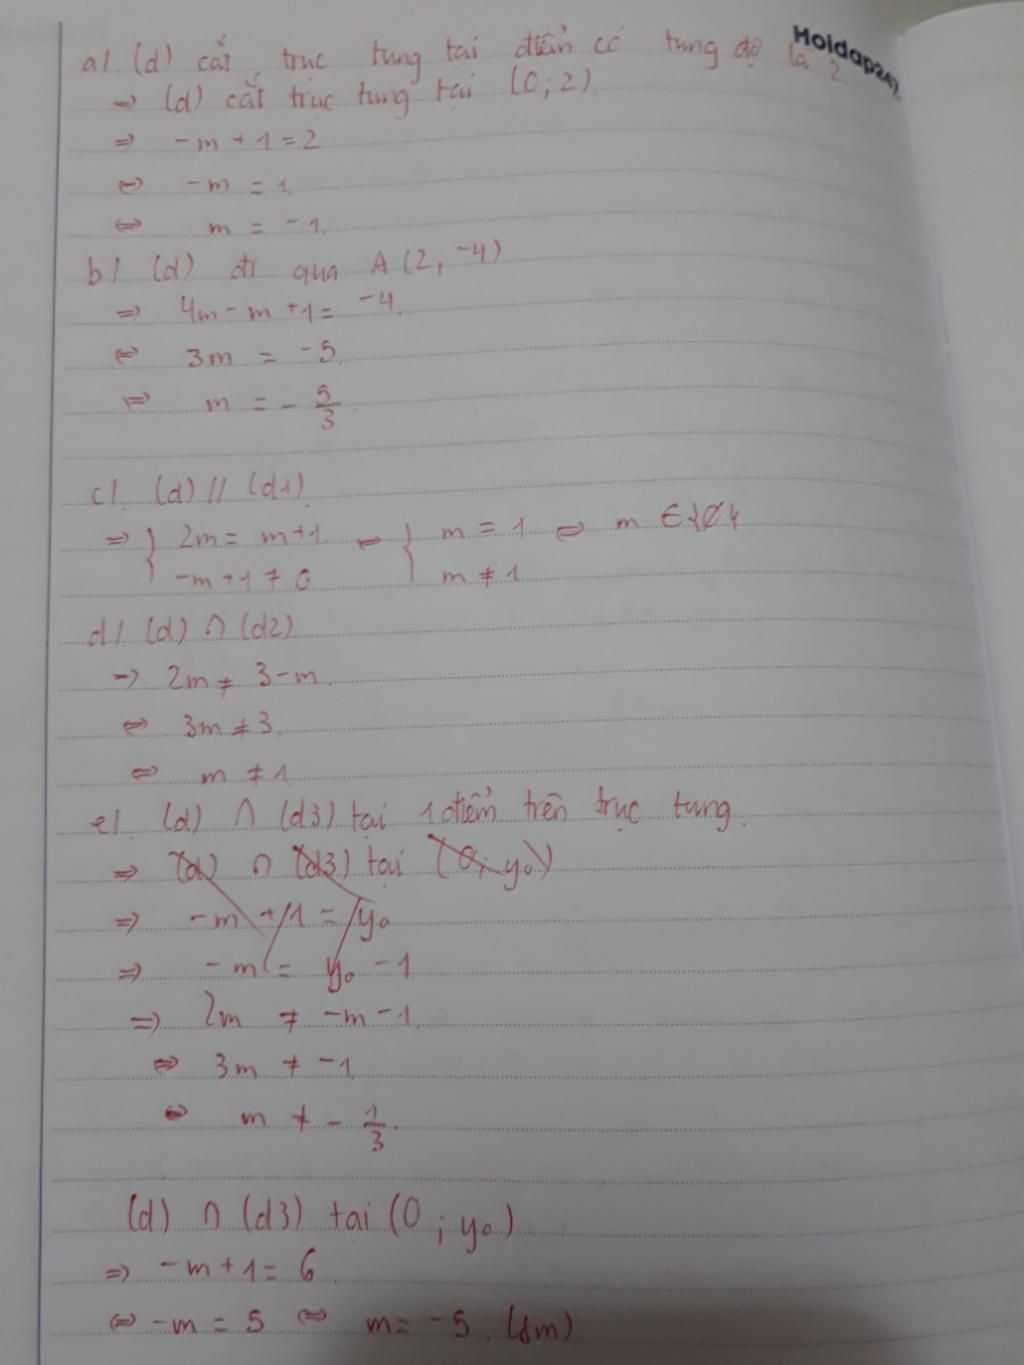 Hoidap247
a/ (d) cắt trục tung tại điểm có tung độ là 2
→ (d) cắt trục tung tại (0;2)
⇒ -m + 1 = 2
⇔ -m = 1
⇔ m = -1
b/ (d) đi qua A(2,-4)
⇒ 4m - m + 1 = -4
⇔ 3m = -5
⇔ m = - 5/3
c/ (d) // (d1)
⇒ { 2m = m+1 ⇔ { m = 1 ⇔ m ∈ {∅}
-m + 1 ≠ 0 m ≠ 1
d/ (d) ∩ (d2)
→ 2m ≠ 3-m
⇔ 3m ≠ 3
⇔ m ≠ 1
e/ (d) ∩ (d3) tại 1 điểm trên trục tung.
⇒ (d) ∩ (d3) tại (0; y₀)
⇒ -m + 1 = y₀
⇒ -m = y₀ - 1
⇒ 2m ≠ -m - 1
⇔ 3m ≠ -1
⇔ m ≠ - 1/3
(d) ∩ (d3) tại (0 ; y₀)
⇒ -m + 1 = 6
⇔ -m = 5 ⇔ m = -5. (tm)